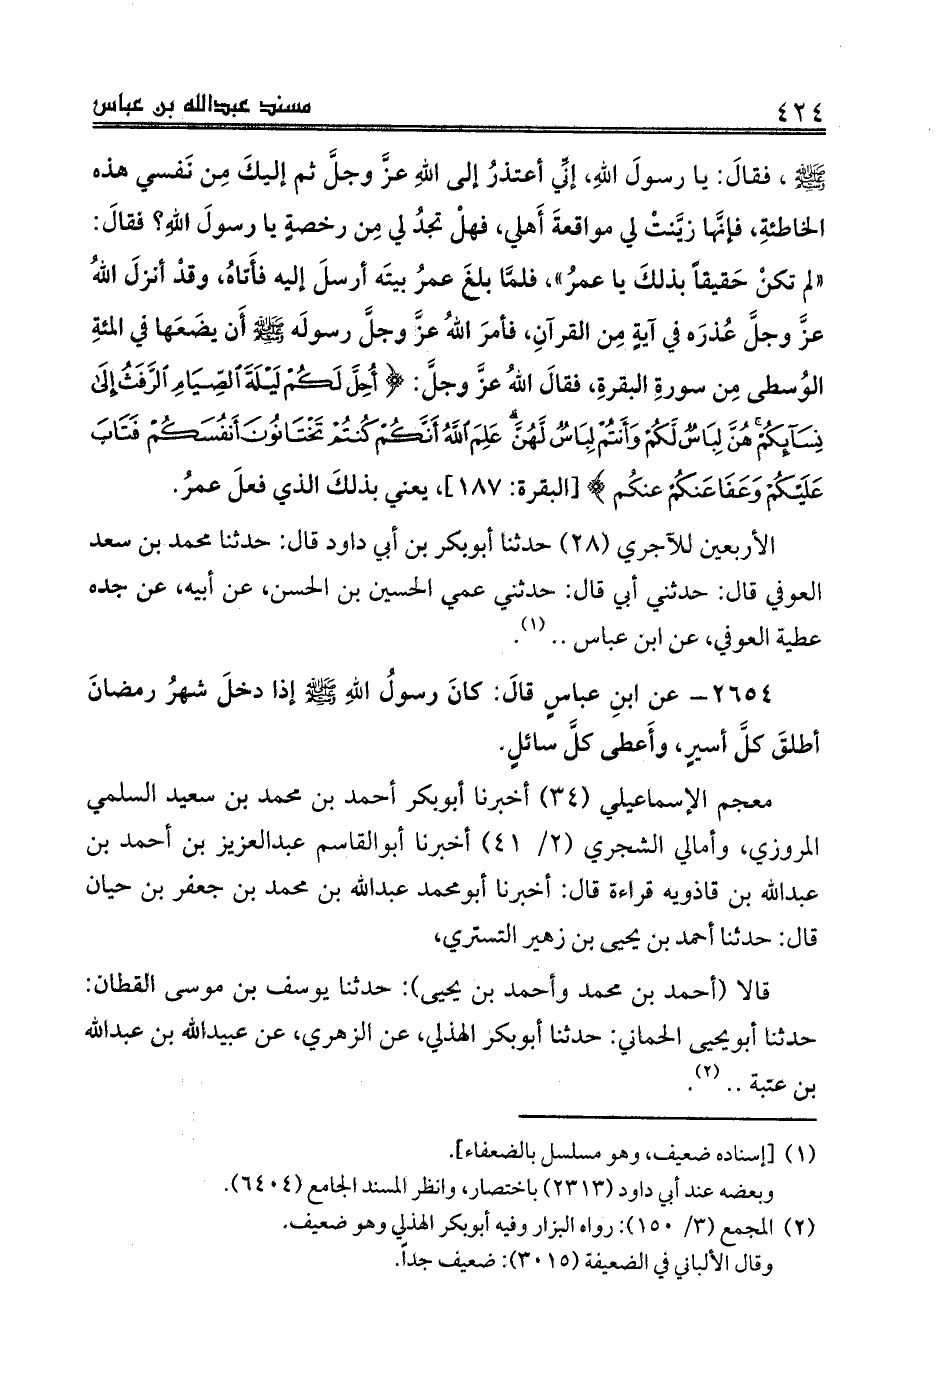 ٤٢٤ مسند عبدالله بن عباس
ﷺ ، فقالَ: يا رسولَ اللهِ، إنِّي أعتذرُ إلى اللهِ عزَّ وجلَّ ثم إليكَ مِن نَفسي هذه
الخاطئةِ، فإنَّها زيَّنتْ لي مواقعةَ أَهلي، فهلْ تجدُ لي مِن رخصةٍ يا رسولَ اللهِ؟ فقالَ:
«لم تكنْ حَقيقاً بذلكَ يا عمرُ»، فلمَّا بلغَ عمرُ بيتَه أرسلَ إليه فأَتاهُ، وقدْ أنزلَ اللهُ
عزَّ وجلَّ عُذرَه في آيةٍ مِن القرآنِ، فأمرَ اللهُ عزَّ وجلَّ رسولَه ﷺ أَن يضَعَها في المئةِ
الوُسطى مِن سورةِ البقرةِ، فقالَ اللهُ عزَّ وجلَّ: ﴿ أُحِلَّ لَكُمْ لَيْلَةَ ٱلصِّيَامِ ٱلرَّفَثُ إِلَىٰ
نِسَآئِكُمْ ۚ هُنَّ لِبَاسٌ لَّكُمْ وَأَنتُمْ لِبَاسٌ لَّهُنَّ ۗ عَلِمَ ٱللَّهُ أَنَّكُمْ كُنتُمْ تَخْتَانُونَ أَنفُسَكُمْ فَتَابَ
عَلَيْكُمْ وَعَفَا عَنكُمْ عنكُم ﴾ [البقرة: ١٨٧]، يعني بذلكَ الذي فعلَ عمرُ.
الأربعين للآجري (٢٨) حدثنا أبوبكر بن أبي داود قال: حدثنا محمد بن سعد
العوفي قال: حدثني أبي قال: حدثني عمي الحسين بن الحسن، عن أبيه، عن جده
عطية العوفي، عن ابن عباس .. (١).
٢٦٥٤ – عن ابنِ عباسٍ قالَ: كانَ رسولُ اللهِ ﷺ إذا دخلَ شهرُ رمضانَ
أطلقَ كلَّ أسيرٍ، وأَعطى كلَّ سائلٍ.
معجم الإسماعيلي (٣٤) أخبرنا أبوبكر أحمد بن محمد بن سعيد السلمي
المروزي، وأمالي الشجري (٢/ ٤١) أخبرنا أبوالقاسم عبدالعزيز بن أحمد بن
عبدالله بن قاذويه قراءة قال: أخبرنا أبومحمد عبدالله بن محمد بن جعفر بن حيان
قال: حدثنا أحمد بن يحيى بن زهير التستري،
قالا (أحمد بن محمد وأحمد بن يحيى): حدثنا يوسف بن موسى القطان:
حدثنا أبويحيى الحماني: حدثنا أبوبكر الهذلي، عن الزهري، عن عبيدالله بن عبدالله
بن عتبة .. (٢).
(١) [إسناده ضعيف، وهو مسلسل بالضعفاء].
وبعضه عند أبي داود (٢٣١٣) باختصار، وانظر المسند الجامع (٦٤٠٤).
(٢) المجمع (٣/ ١٥٠): رواه البزار وفيه أبوبكر الهذلي وهو ضعيف.
وقال الألباني في الضعيفة (٣٠١٥): ضعيف جداً.